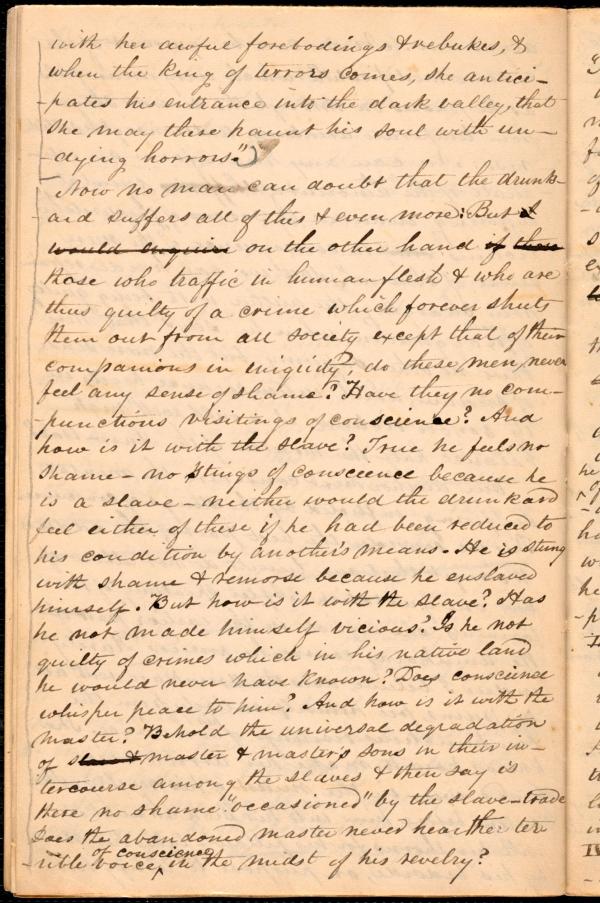 with her awful forebodings & rebukes, &
when the King of terrors comes, she antici-
-pates his entrance into the dark valley, that
she may there haunt his soul with un-
-dying horrors.")
Now no man can doubt that the drunk-
-ard suffers all of this & even more: But I
would enquire on the other hand if those
those who traffic in human flesh & who are
thus guilty of a crime which forever shuts
them out from all society except that of their
companions in iniquity?, do these men never
feel any sense of shame? Have they no com-
-punctious visitings of conscience? And
how is it with the slave? True he feels no
shame - no stings of conscience because he
is a slave - neither would the drunkard
feel either of these if he had been reduced to
his condition by another's means. He is stung
with shame & remorse because he enslaved
himself. But how is it with the slave? Has
he not made himself vicious? Is he not
guilty of crimes which in his native land
he would never have known? Does conscience
whisper peace to him? And how is it with the
master? Behold the universal degradation
of slave & master & master's sons in their in-
tercourse among the slaves & then say is
there no shame "occasioned" by the slave-trade
Does the abandoned master never hear the ter-
-rible voice of conscience, in the midst of his revelry?